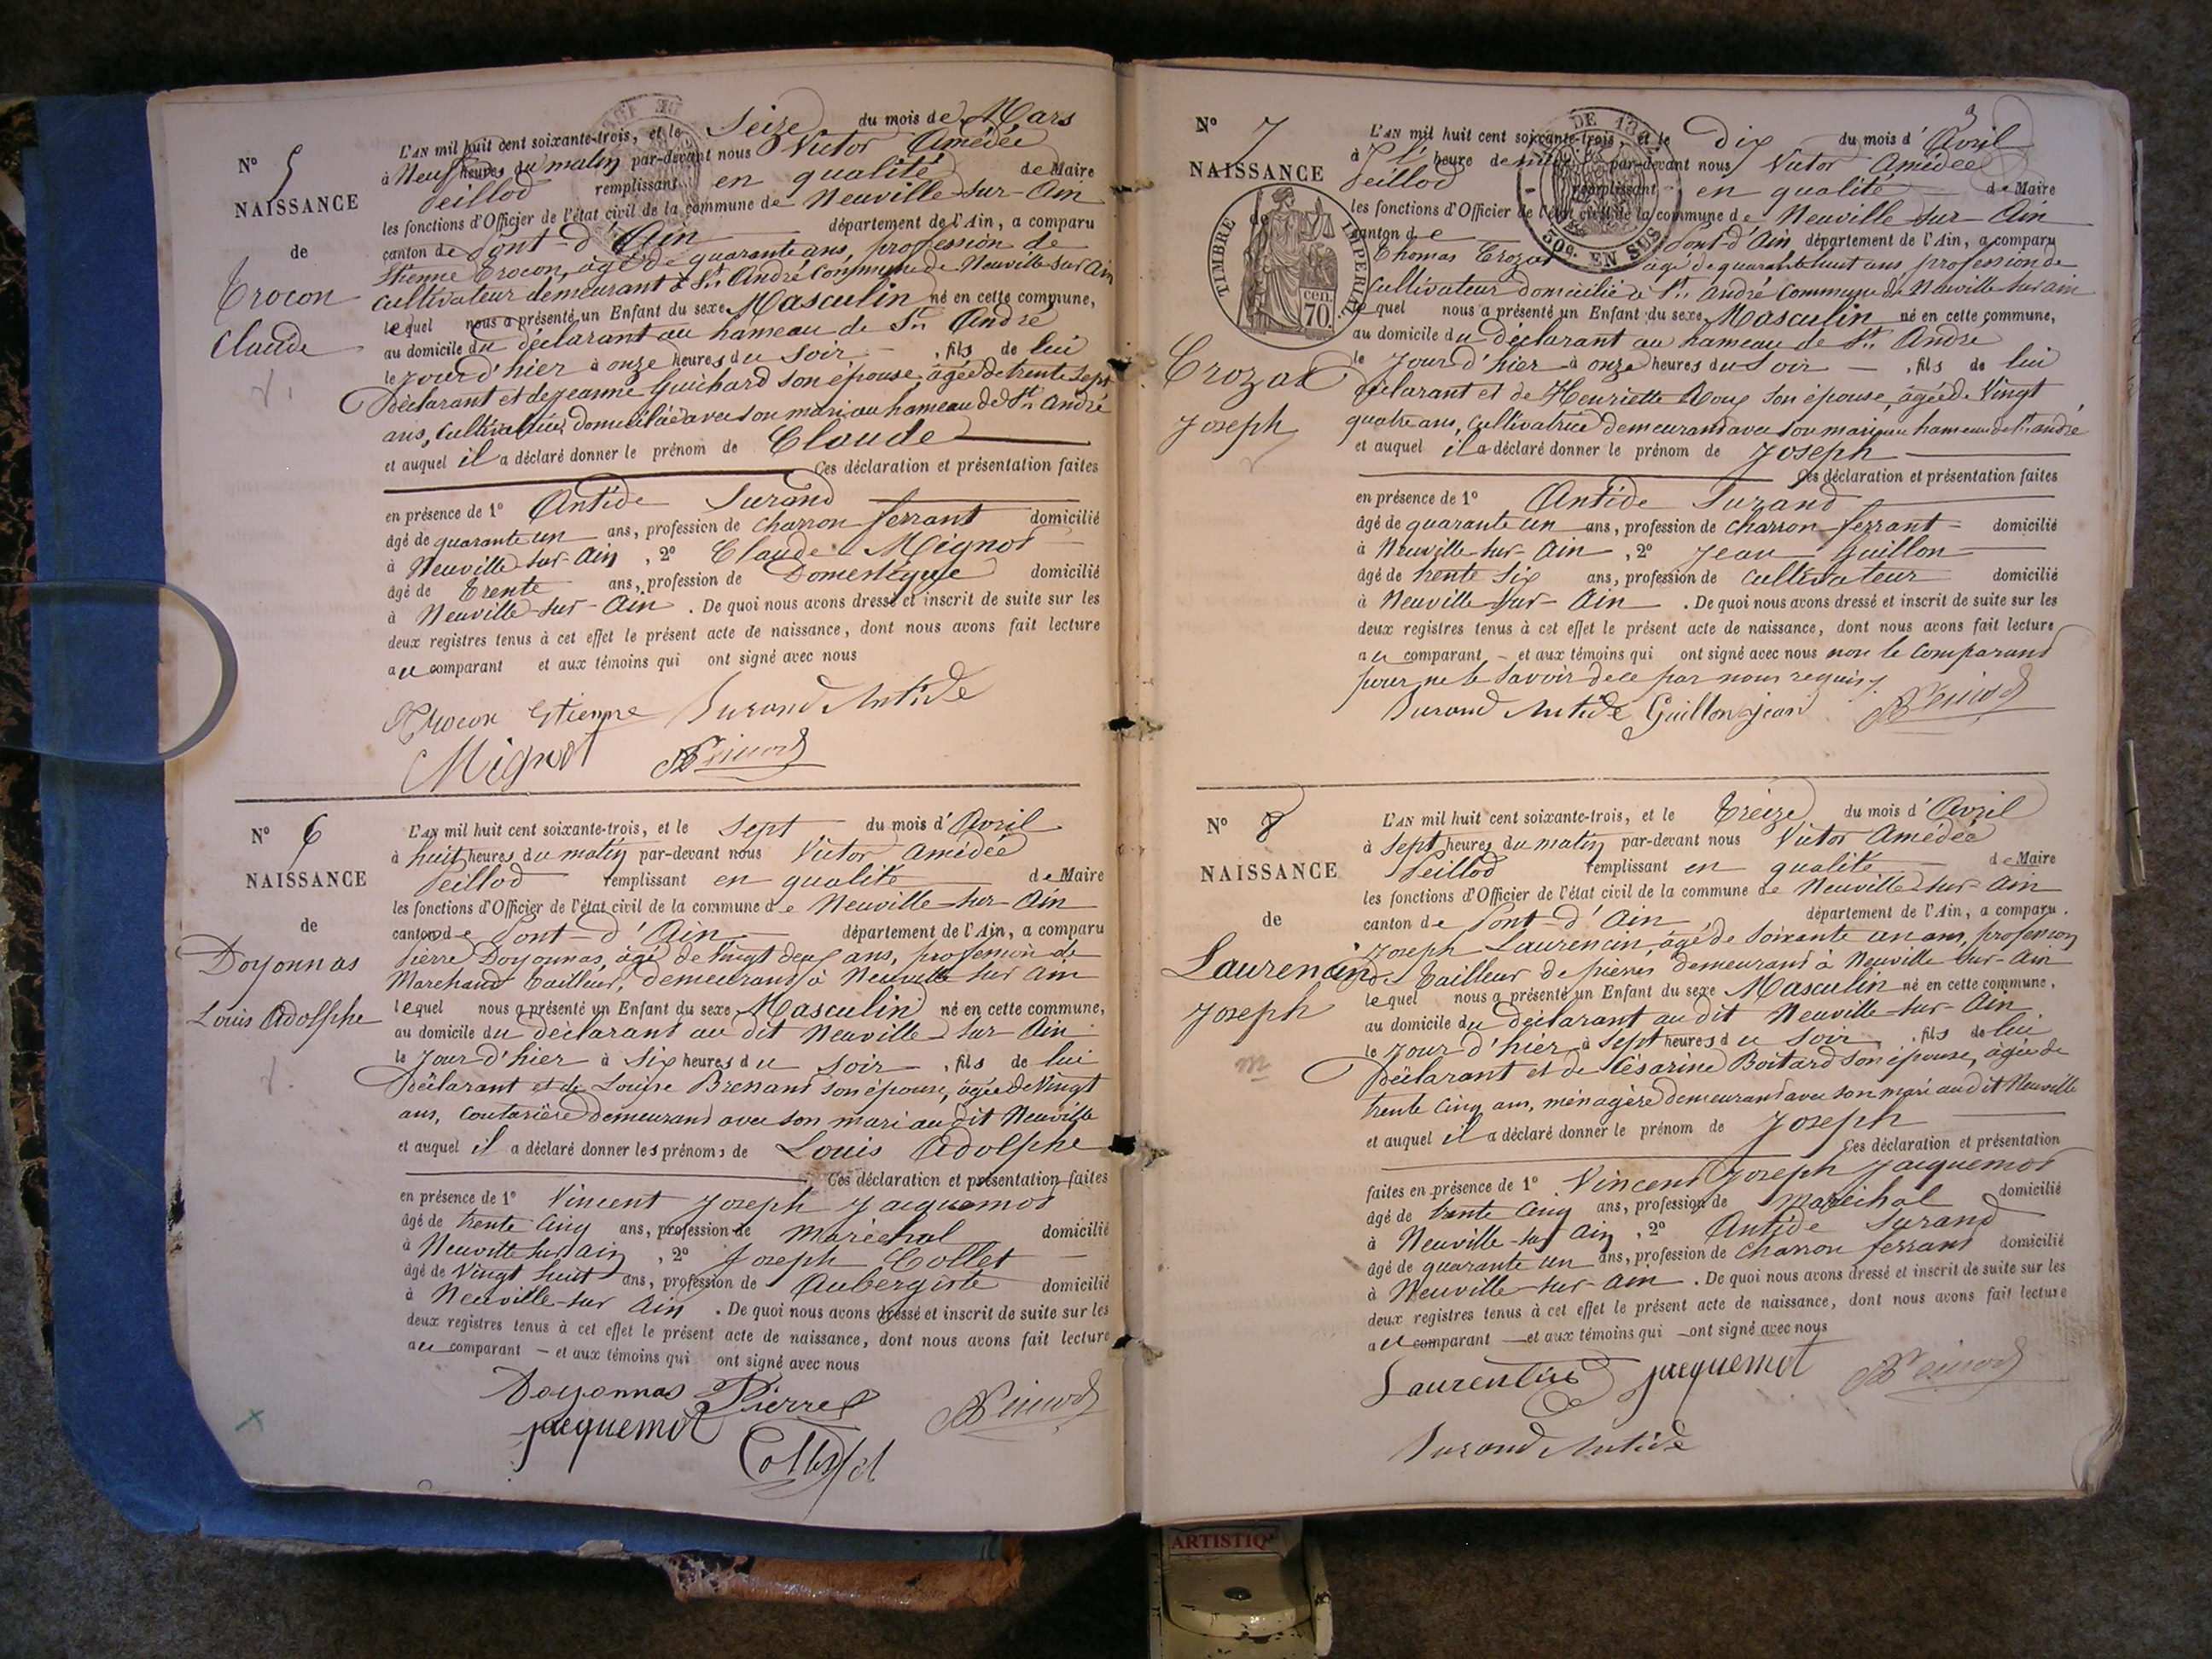 N° 5
NAISSANCE
de
Trocon
Claude
L'AN mil huit cent soixante-trois, et le Seize du mois de Mars
à Neuf heures du matin par-devant nous Victor Amédée
Peillod remplissant en qualité de Maire
les fonctions d'Officier de l'état civil de la commune de Neuville-sur-Ain
canton de Pont-d'Ain département de l'Ain, a comparu
Etienne Trocon, agé de quarante ans, profession de
Cultivateur demeurant à St. André Commune de Neuville sur Ain
lequel nous a présenté un Enfant du sexe Masculin né en cette commune,
au domicile du déclarant au hameau de St. André
le Jour d'hier à onze heures du Soir, fils de lui
Déclarant et de Jeanne Guichard son épouse, agée de trente sept
ans, Cultivatrice domiciliée avec son mari au hameau de St. André
et auquel il a déclaré donner le prénom de Claude
Ces déclaration et présentation faites
en présence de 1° Antide Durand
âgé de quarante un ans, profession de Charron ferrant domicilié
à Neuville-sur-Ain, 2° Claude Mignot
âgé de Trente ans, profession de Domestique domicilié
à Neuville-sur-Ain. De quoi nous avons dressé et inscrit de suite sur les
deux registres tenus à cet effet le présent acte de naissance, dont nous avons fait lecture
au comparant et aux témoins qui ont signé avec nous
Trocon Etienne Durand Antide
Mignot
N° 6
NAISSANCE
de
Doyonnas
Louis Adolphe
L'AN mil huit cent soixante-trois, et le Sept du mois d'Avril
à huit heures du matin par-devant nous Victor Amédée
Peillod remplissant en qualité de Maire
les fonctions d'Officier de l'état civil de la commune de Neuville-sur-Ain
canton de Pont-d'Ain département de l'Ain, a comparu
Pierre Doyonnas, agé de Vingt deux ans, profession de
Marchand Tailleur, demeurant à Neuville sur Ain
lequel nous a présenté un Enfant du sexe Masculin né en cette commune,
au domicile du déclarant au dit Neuville-sur-Ain
le Jour d'hier à Six heures du Soir, fils de lui
Déclarant et de Louise Brenans son épouse, agée de Vingt
ans, Couturière demeurant avec son mari au dit Neuville
et auquel il a déclaré donner les prénoms de Louis Adolphe
Ces déclaration et présentation faites
en présence de 1° Vincent Joseph Jacquemot
âgé de trente cinq ans, profession de Maréchal domicilié
à Neuville sur Ain, 2° Joseph Collet
âgé de Vingt huit ans, profession de Aubergiste domicilié
à Neuville-sur Ain. De quoi nous avons dressé et inscrit de suite sur les
deux registres tenus à cet effet le présent acte de naissance, dont nous avons fait lecture
au comparant et aux témoins qui ont signé avec nous
Doyonnas Pierre
jacquemot Collet
3
N° 7
NAISSANCE
de
TIMBRE IMPERIAL
70 cen.
Crozat
Joseph
DE 18
50c. EN SUS
L'AN mil huit cent soixante-trois, et le dix du mois d'Avril
à l' heure de midi par-devant nous Victor Amédée
Peillod remplissant en qualité de Maire
les fonctions d'Officier de l'état civil de la commune de Neuville-sur-Ain
canton de Pont-d'Ain département de l'Ain, a comparu
Thomas Crozat agé de quarante huit ans, profession de
Cultivateur domicilié à St. André Commune de Neuville sur ain
lequel nous a présenté un Enfant du sexe Masculin né en cette commune,
au domicile du déclarant au hameau de St. André
le Jour d'hier à onze heures du Soir, fils de lui
Déclarant et de Henriette Roux son épouse, agée de Vingt
quatre ans, Cultivatrice demeurand avec son mari au hameau de St. andré
et auquel il a déclaré donner le prénom de Joseph
Ces déclaration et présentation faites
en présence de 1° Antide Durand
âgé de quarante un ans, profession de charron ferrant domicilié
à Neuville-sur-Ain, 2° Jean Guillon
âgé de trente Six ans, profession de Cultivateur domicilié
à Neuville-sur-Ain. De quoi nous avons dressé et inscrit de suite sur les
deux registres tenus à cet effet le présent acte de naissance, dont nous avons fait lecture
au comparant et aux témoins qui ont signé avec nous non le Comparand
pour ne le Savoir de ce par nous requis.
Durand Antide Guillon jean
N° 8
NAISSANCE
de
Laurencin
Joseph
L'AN mil huit cent soixante-trois, et le Treize du mois d'Avril
à Sept heures du matin par-devant nous Victor Amédée
Peillod remplissant en qualité de Maire
les fonctions d'Officier de l'état civil de la commune de Neuville-sur-Ain
canton de Pont-d'Ain département de l'Ain, a comparu.
Joseph Laurencin, agé de Soixante un ans, profession
de Tailleur de pierres demeurant à Neuville-sur-Ain
lequel nous a présenté un Enfant du sexe Masculin né en cette commune,
au domicile du déclarant au dit Neuville-sur-Ain
le Jour d'hier à Sept heures du Soir, fils de lui
Déclarant et de Césarine Boitard son épouse, agée de
trente Cinq ans, ménagère demeurant avec son mari au dit Neuville
et auquel il a déclaré donner le prénom de Joseph
Ces déclaration et présentation
faites en présence de 1° Vincent Joseph Jacquemot
âgé de trente cinq ans, profession de Maréchal domicilié
à Neuville-sur Ain, 2° Antide Durand
âgé de quarante un ans, profession de Charron ferrant domicilié
à Neuville-sur-Ain. De quoi nous avons dressé et inscrit de suite sur les
deux registres tenus à cet effet le présent acte de naissance, dont nous avons fait lecture
au comparant et aux témoins qui ont signé avec nous
jacquemot
Durand Antide
ARTISTIQ